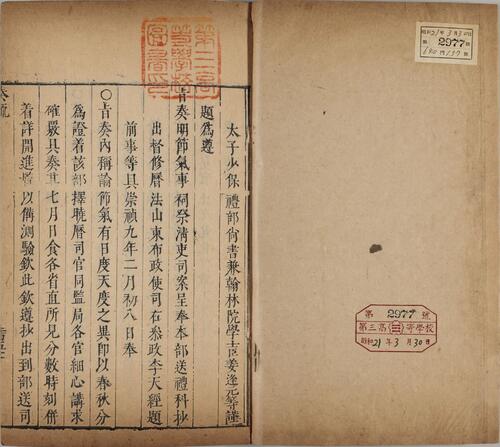 昭和21年3月30日
第 2977 號
第三高等學校
昭和21年3月30日
第 2977 號
第三高等學校圖書印
太子少保禮部尚書兼翰林院學士臣姜逢元等謹
題為遵
旨奏明節氣事祠祭清吏司案呈奉本部送禮科抄
出督修曆法山東布政使司右叅政李天經題
前事等具崇禎九年二月初八日奉
〇旨奏內稱論節氣有日度天度之異即以春秋分
為證着該部擇曉曆司官同監局各官細心講求
確嚴具奏其七月日食各省直所見分數時刻併
着詳開進覽以備測驗欽此欽遵抄出到部送司
奏疏